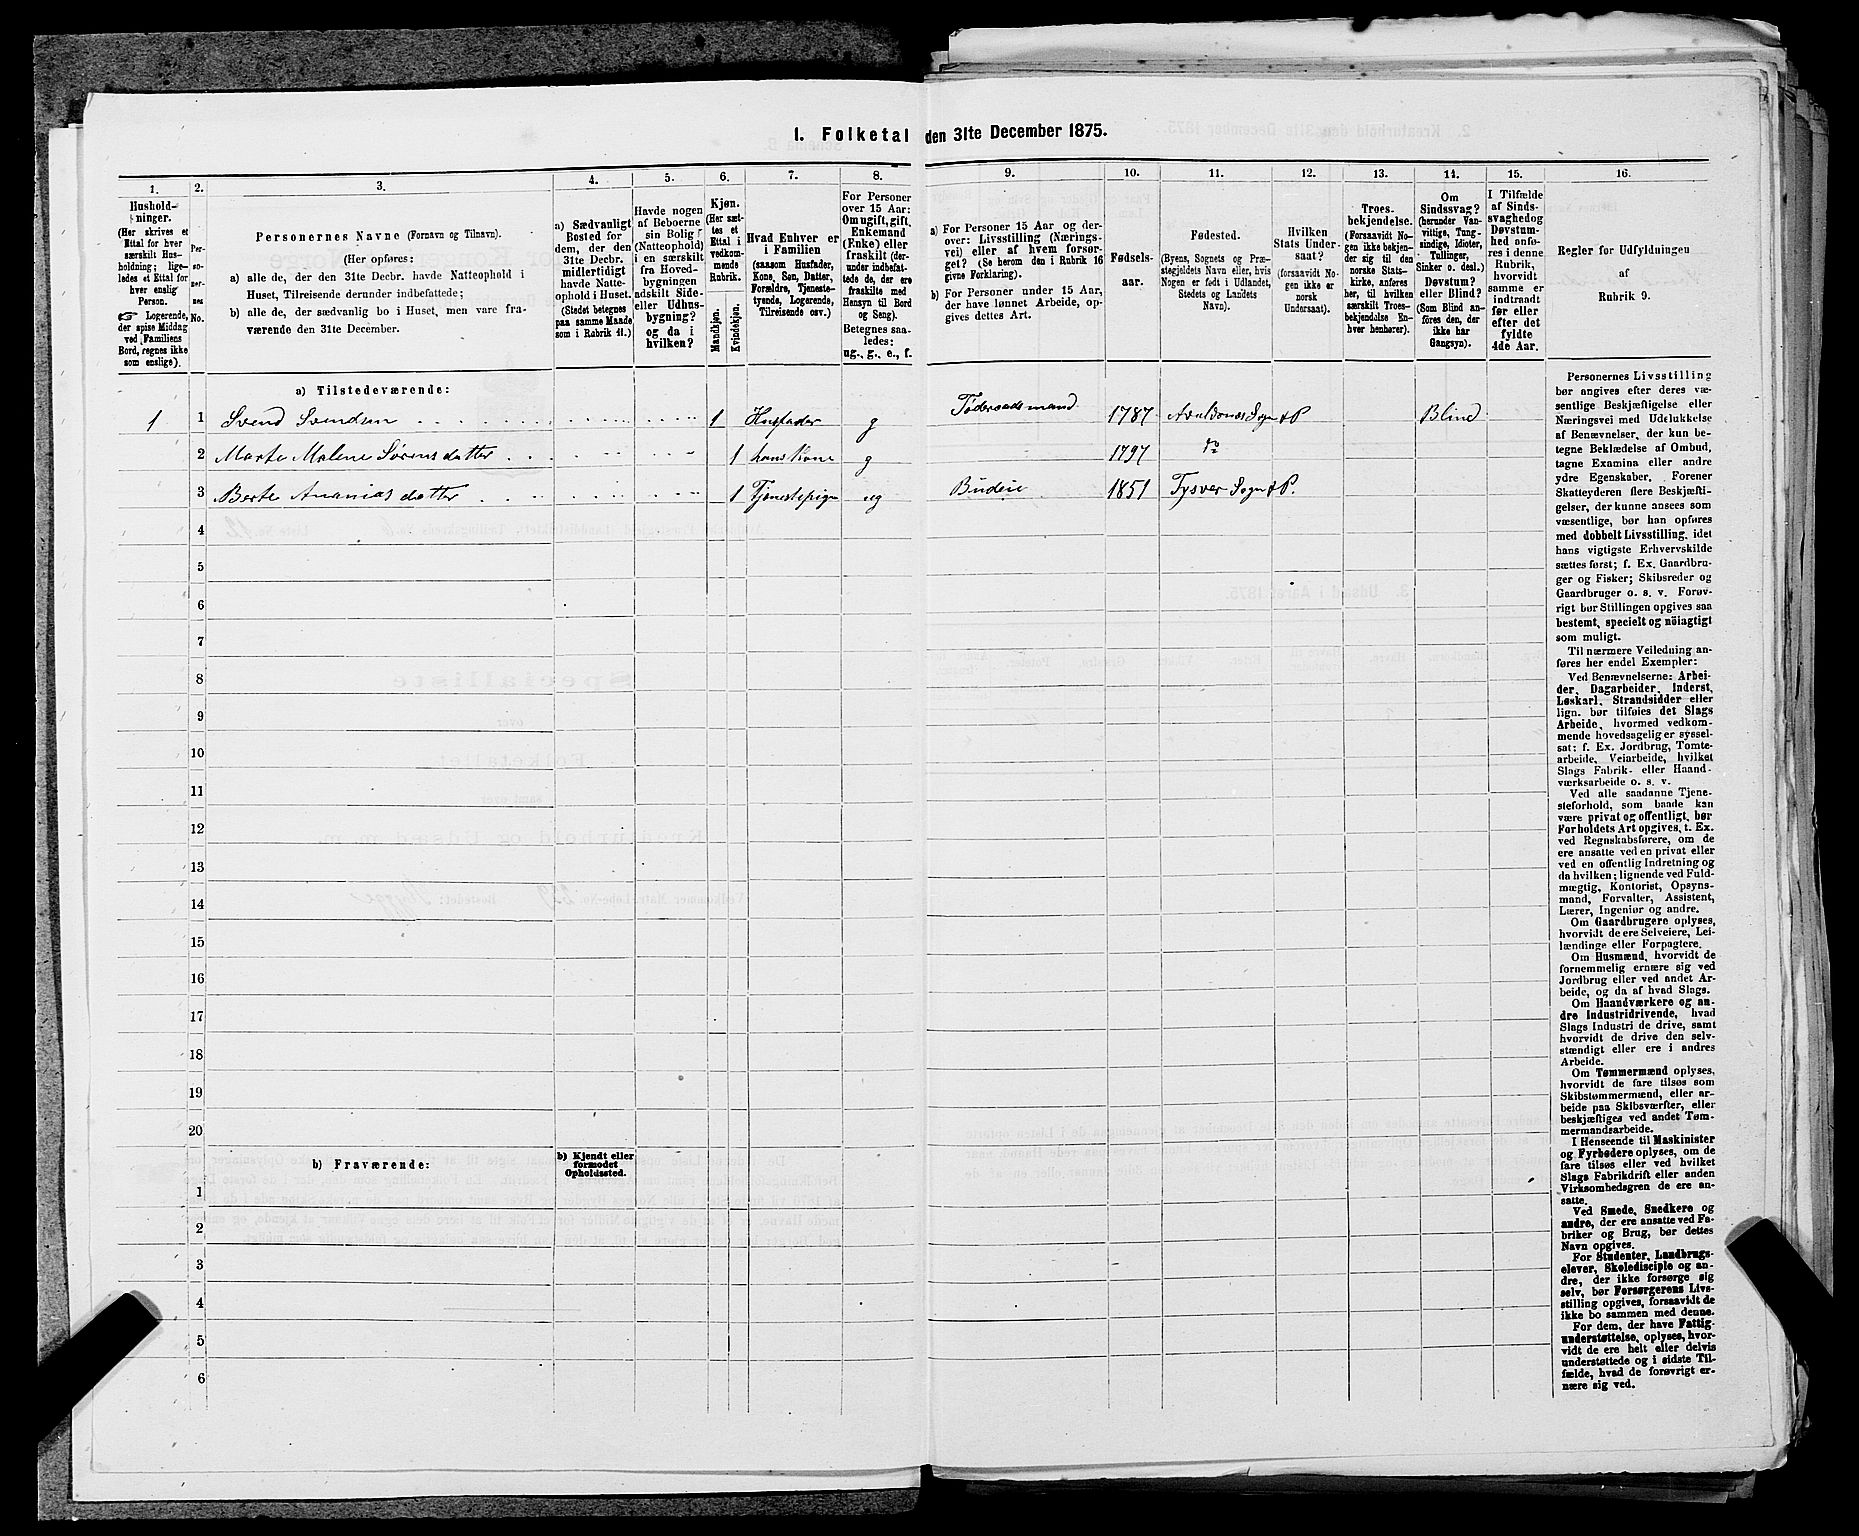 1. Folketal den 31te December 1875.
1. 2. 3. 4. 5. 6. 7. 8. 9. 10. 11. 12. 13. 14. 15. 16.
Hushold-
ninger.
(Her skrives et
Ettal for hver
særskilt Hus-
holdning; lige-
ledes et Ettal for
hver enslig
Person.
☞ Logerende,
der spise Middag
ved Familiens
Bord, regnes ikke
som enslige).
Per-
so-
ner-
nes
No.
Personernes Navne (Fornavn og Tilnavn).
(Her opføres:
a) alle de, der den 31te Decbr. havde Natteophold i
Huset, Tilreisende derunder indbefattede;
b) alle de, der sædvanlig bo i Huset, men vare fra-
værende den 31te December.
a) Sædvanligt
Bosted for
dem, der den
31te Decbr.
midlertidigt
havde Natte-
ophold i Huset.
(Stedet betegnes
paa samme Maade
som i Rubrik 11.)
Havde nogen
af Beboerne
sin Bolig
(Natteophold)
i en særskilt
fra Hoved-
bygningen
adskilt Side-
eller Udhus-
bygning?
og da i
hvilken?
Kjøn.
(Her sæt-
tes et
Ettal i
vedkom-
mende
Rubrik.
Mandkjøn.
Kvindekjøn.
Hvad Enhver er
i Familien
(saasom Husfader,
Kone, Søn, Datter,
Forældre, Tjeneste-
tyende, Logerende,
Tilreisende osv.)
For Personer
over 15 Aar:
Om ugift, gift,
Enkemand
(Enke) eller
fraskilt (der-
under indbefat-
tede de, der ere
fraskilte med
Hensyn til Bord
og Seng).
Betegnes saa-
ledes:
ug., g., e., f.
a) For Personer 15 Aar og der-
over: Livsstilling (Nærings-
vei) eller af hvem forsør-
get? (Se herom den i Rubrik 16
givne Forklaring).
b) For Personer under 15 Aar,
der have lønnet Arbeide, op-
gives dettes Art.
Fødsels-
aar.
Fødested.
(Byens, Sognets og Præ-
stegjeldets Navn eller, hvis
Nogen er født i Udlandet,
Stedets og Landets
Navn).
Hvilken
Stats Under-
saat?
(forsaavidt No-
gen ikke er
norsk
Undersaat).
Troes-
bekjendelse.
(Forsaavidt No-
gen ikke bekjen-
der sig til den
norske Stats-
kirke, anføres
her, til hvilken
særskilt Troes-
bekjendelse En-
hver henhører).
Om
Sindssvag?
(herunder Van-
vittige, Tung-
sindige, Idioter,
Tullinger,
Sinker o. desl.)
Døvstum?
eller Blind?
(Som Blind an-
føres den, der
ikke har
Gangsyn).
I Tilfælde
af Sinds-
svaghed og
Døvstum-
hed anfø-
res i denne
Rubrik,
hvorvidt
samme er
indtraadt
før eller
efter det
fyldte
4de Aar.
Regler for Udfyldningen
af
Rubrik 9.
a) Tilstedeværende:
1 1 Svend Svendsen 1 Husfader g Føderaadsmand 1787 Avaldsnæs Sogn & P Blind
2 Marte Malene Sørensdatter 1 hans Kone g 1797 do
3 Berte Ananiasdatter 1 Tjenestepige ug Budeie 1851 Tysvær Sogn & P.
4
5
6
7
8
9
10
11
12
13
14
15
16
17
18
19
20
b) Fraværende:
b) Kjendt eller
formodet
Opholdssted.
1
2
3
4
5
6
Personernes Livsstilling
bør angives efter deres væ-
sentlige Beskjæftigelse eller
Næringsvei med Udelukkelse
af Benævnelser, der kun be-
tegne Beklædelse af Ombud,
tagne Examina eller andre
ydre Egenskaber. Forener
Skatteyderen flere Beskjæfti-
gelser, der kunne ansees som
væsentlige, bør han opføres
med dobbelt Livsstilling, idet
hans vigtigste Erhvervskilde
sættes først; f. Ex. Gaardbru-
ger og Fisker; Skibsreder og
Gaardbruger o. s. v. Forøv-
rigt bør Stillingen opgives saa
bestemt, specielt og nöiagtigt
som muligt.
Til nærmere Veiledning an-
føres her endel Exempler:
Ved Benævnelserne: Arbei-
der, Dagarbeider, Inderst,
Løskarl, Strandsidder eller
lign. bør tilføies det Slags
Arbeide, hvormed vedkom-
mende hovedsagelig er syssel-
sat; f. Ex. Jordbrug, Tomte-
arbeide, Veiarbeide, hvilket
Slags Fabrik- eller Haand-
værksarbeide o. s. v.
Ved alle saadanne Tjene-
steforhold, som baade kan
være privat og offentligt, bør
Forholdets Art opgives, t. Ex.
ved Regnskabsførere, om de
ere ansatte ved en privat eller
ved en offentlig Indretning og
da hvilken; lignende ved Fuld-
mægtig, Kontorist, Opsyns-
mand, Forvalter, Assistent,
Lærer, Ingeniør og andre.
Om Gaardbrugere oplyses,
hvorvidt de ere Selveiere, Lei-
lændinge eller Forpagtere.
Om Husmænd, hvorvidt de
fornemmelig ernære sig ved
Jordbrug eller ved andet Ar-
beide, og da af hvad Slags.
Om Haandværkere og an-
dre Industridrivende, hvad
Slags Industri de drive, samt
hvorvidt de drive den selv-
stændigt eller ere i andres
Arbeide.
Om Tømmermænd oplyses,
hvorvidt de fare tilsøs som
Skibstømmermænd, eller ar-
beide paa Skibsværfter, eller
beskjæftiges ved andet Tøm-
mermandsarbeide.
I Henseende til Maskinister
og Fyrbødere oplyses, om de
fare tilsøs eller ved hvilket
Slags Fabrikdrift eller anden
Virksomhedsgren de ere an-
satte.
Ved Smede, Snedkere og
andre, der ere ansatte ved Fa-
briker og Brug, bør dettes
Navn opgives.
For Studenter, Landbrugs-
elever, Skoledisciple og an-
dre, der ikke forsørge sig
selv, bør Forsørgerens Livs-
stilling opgives, forsaavidt de
ikke bo sammen med denne.
For dem, der have Fattig-
understøttelse, oplyses, hvor-
vidt de ere helt eller delvis
understøttede og i sidste Til-
fælde, hvad de forøvrigt er-
nære sig ved.